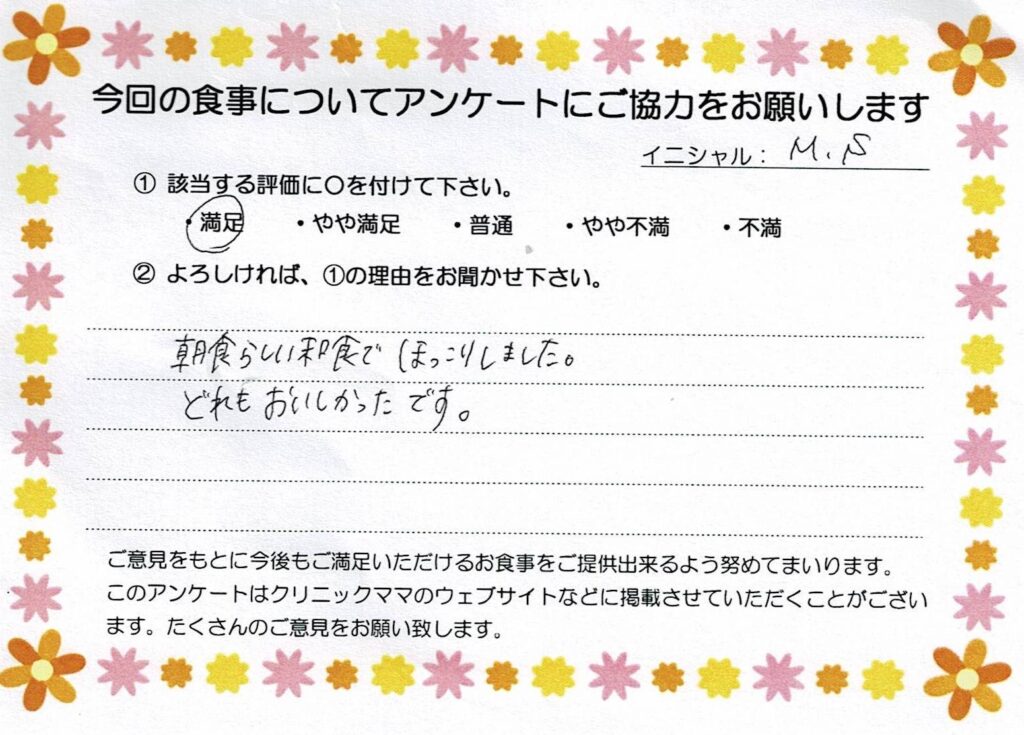 今回の食事についてアンケートにご協力をお願いします
イニシャル： M.S
① 該当する評価に〇を付けて下さい。
・満足 ・やや満足 ・普通 ・やや不満 ・不満
② よろしければ、①の理由をお聞かせ下さい。
朝食らしい和食でほっこりしました。
どれもおいしかったです。
ご意見をもとに今後もご満足いただけるお食事をご提供出来るよう努めてまいります。
このアンケートはクリニックママのウェブサイトなどに掲載させていただくことがござい
ます。たくさんのご意見をお願い致します。